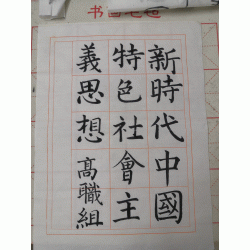 新時代中國
特色社會主
義思想高職組